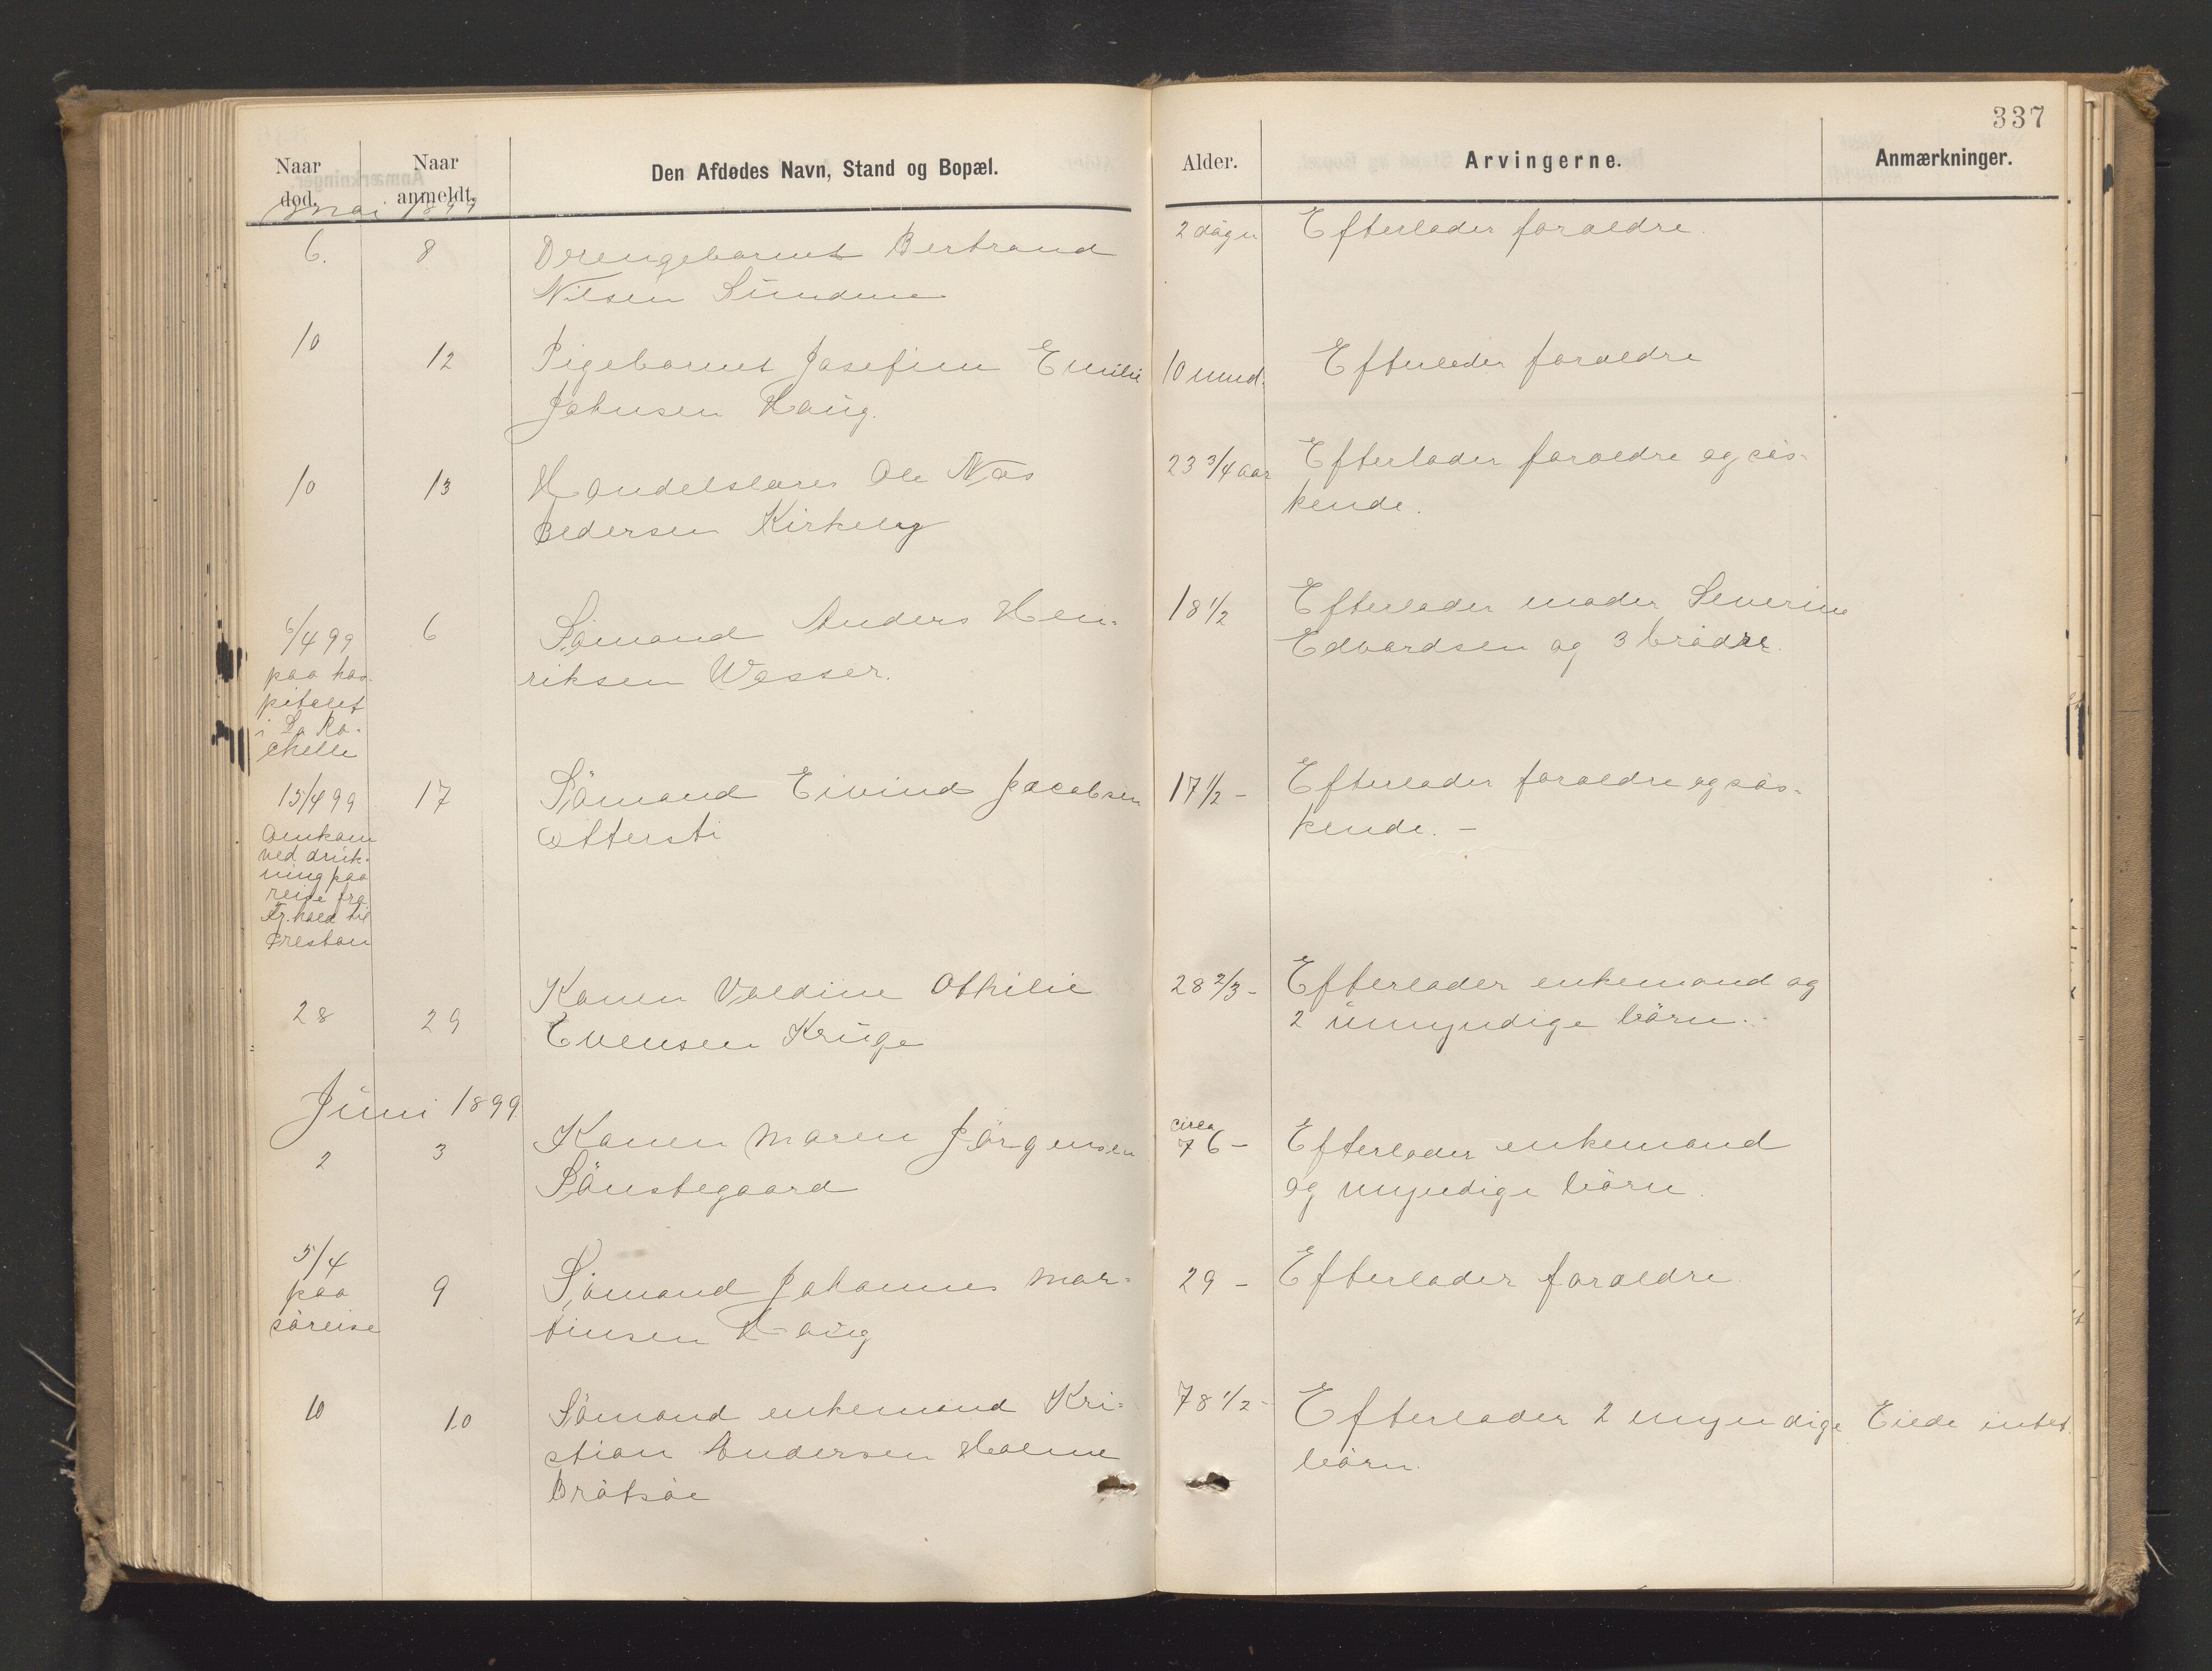 337
Naar død.
Naar anmeldt.
Den Afdødes Navn, Stand og Bopæl.
Alder.
Arvingerne.
Anmærkninger.
Mai 1899
6. 8 Drengebarnet Bertrand 2 dage Efterlader forældre.
Nilsen Sundene
10 12 Pigebarnet Josefine Emilie 10 mnd. Efterlader forældre
Johnsen Haug.
10 13 Handelslærer Ole Næs 23 3/4 aar Efterlader forældre og søs-
Pedersen Kirkeby kende.
6/4 99 6 Sømand Anders Hen- 18 1/2 Efterlader moder Severine
paa hos- riksen Vasser. Edvardsen og 3 brødre.
pitalet
i La Ro-
chelle
15/4 99 17 Sømand Eivind Jacobsen 17 1/2 - Efterlader forældre og søs-
Omkom Ottersti kende. -
ved druk-
ning paa
reise fra
Fr.hald til
Preston
28 29 Konen Valdine Othilie 28 2/3 - Efterlader enkemand og
Evensen Kruge 2 umyndige børn.
Juni 1899
2 3 Konen Maren Jørgensen circa 76 - Efterlader enkemand
Sønstegaard og myndige børn.
5/4 9 Sømand Johannes Mar- 29 - Efterlader forældre
paa tinsen Haug
søreise
10 10 Sømand enkemand Kri- 78 1/2 - Efterlader 2 myndige Eiede intet.
stian Andersen Holme børn.
Brøtsøe